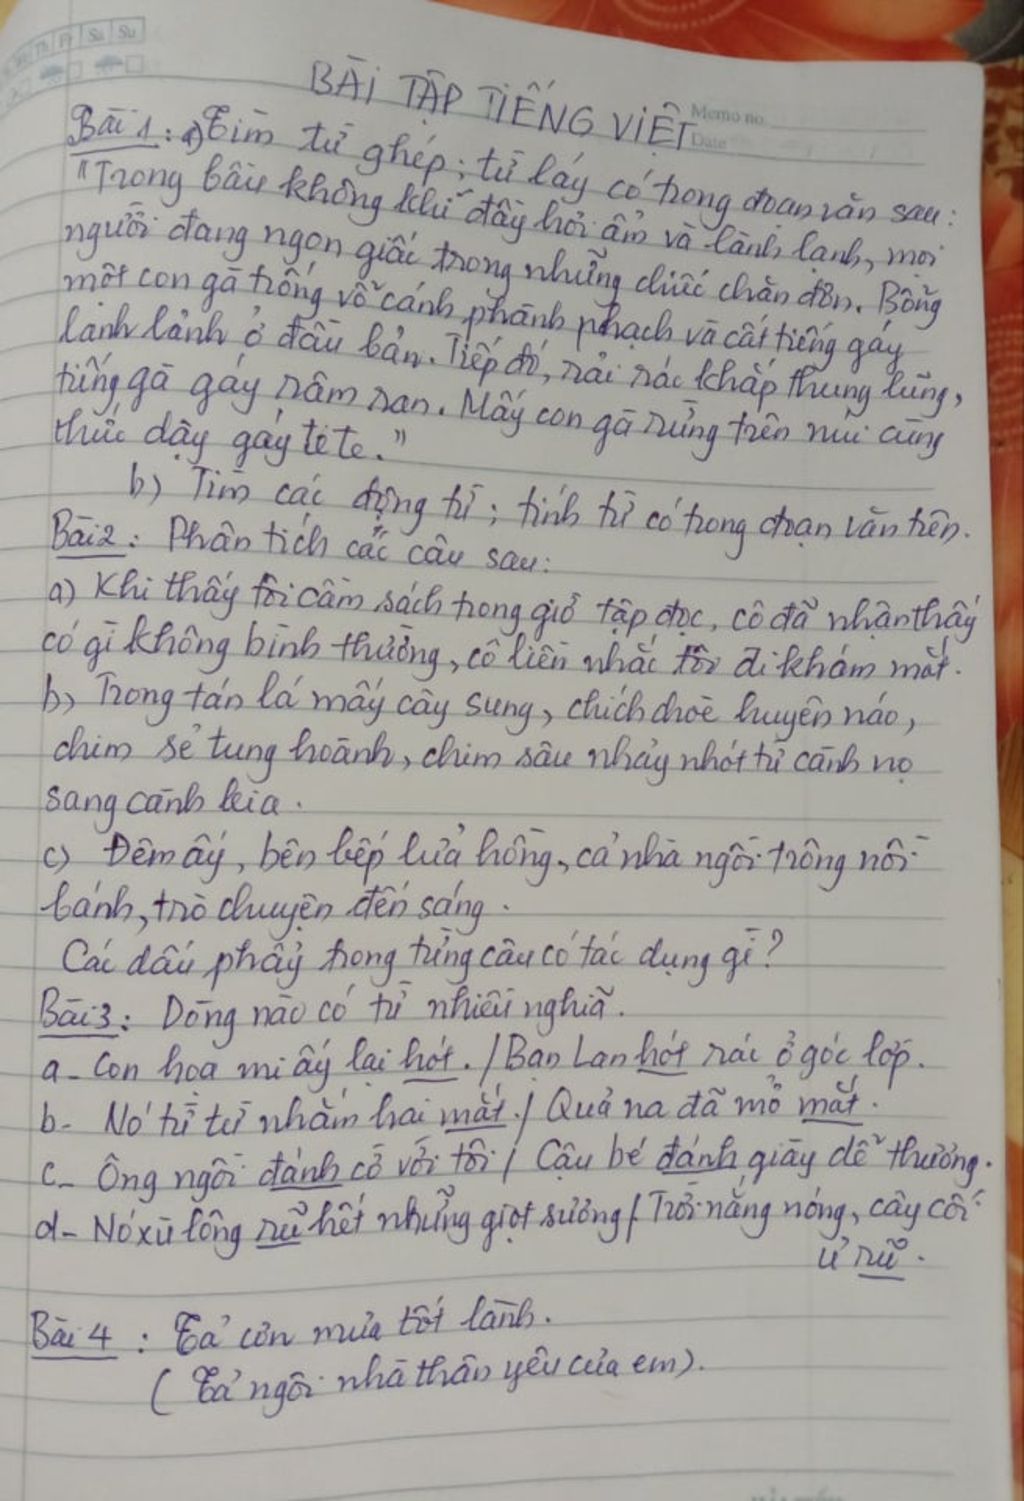 Th Fr Sa Su
Memo no.
Date
BÀI TẬP TIẾNG VIỆT
Bài 1: a) Tìm từ ghép; từ láy có trong đoạn văn sau:
"Trong bầu không khí đầy hơi ẩm và lành lạnh, mọi
người đang ngon giấc trong những chiếc chăn đơn. Bỗng
một con gà trống vỗ cánh phành phạch và cất tiếng gáy
lanh lảnh ở đầu bản. Tiếp đó, rải rác khắp thung lũng,
tiếng gà gáy râm ran. Mấy con gà rừng trên núi cũng
thức dậy gáy te te."
b) Tìm các động từ; tính từ có trong đoạn văn trên.
Bài 2: Phân tích các câu sau:
a) Khi thấy tôi cầm sách trong giờ tập đọc, cô đã nhận thấy
có gì không bình thường, cô liền nhắc tôi đi khám mắt.
b) Trong tán lá mấy cây sung, chích choè huyên náo,
chim sẻ tung hoành, chim sâu nhảy nhót từ cành nọ
sang cành kia.
c) Đêm ấy, bên bếp lửa hồng, cả nhà ngồi trông nồi
bánh, trò chuyện đến sáng.
Các dấu phẩy trong từng câu có tác dụng gì?
Bài 3: Dòng nào có từ nhiều nghĩa.
a- Con hoạ mi ấy lại hót. / Bạn Lan hót rác ở góc lớp.
b- Nó từ từ nhắm hai mắt. / Quả na đã mở mắt.
c- Ông ngồi đánh cờ với tôi / Cậu bé đánh giày dễ thương.
d- Nó xù lông rũ hết những giọt sương / Trời nắng nóng, cây cối
ủ rũ.
Bài 4: Tả cơn mưa tốt lành.
(Tả ngôi nhà thân yêu của em).